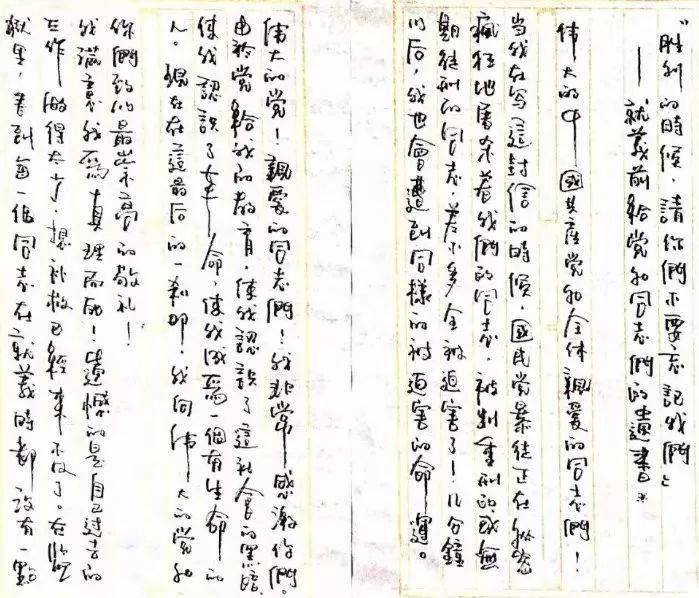 “胜利的时候，請你們不要忘記我們」
——就義前給党和同志們的遺書*
伟大的中國共產党和全体親爱的同志們！
当我在写這封信的時候，國民党暴徒正在秘密
瘋狂地屠杀着我們的同志，被判重刑的或無
期徒刑的同志差不多全被迫害了！几分鐘
以后，我也會遭到同樣的被迫害的命運。
伟大的党！親爱的同志們！我非常感激你們。
由於党給我的教育，使我認識了這社會的黑暗，
使我認識了革命，使我成為一個有生命的
人。現在在這最后的一剎那，我向伟大的党和
你們致以最崇高的敬礼！
我滿意我為真理而死！遺憾的是自己过去的
工作做得太少，想补救已經來不及了。在监
狱里，看到每一個同志在就義時都沒有一點